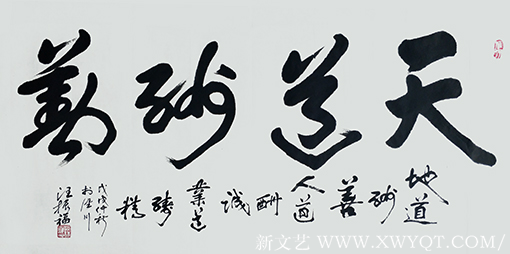 天道酬勤
地道
酬
善
人道
酬
誠
業道
酬
精
戊戌仲秋
汪振福
新文艺 WWW.XWYQT.COM